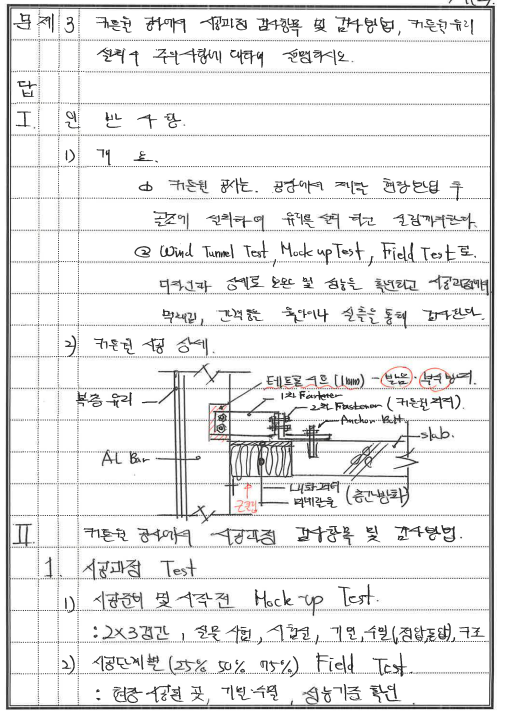 문제 3 커튼월 공사에서 시공과정 검사항목 및 검사방법, 커튼월 유리
설치시 주의사항에 대하여 설명하시오.
답
I. 일반사항.
1) 개요.
① 커튼월 공사는. 공장에서 제작 현장반입 후
골조에 설치하여 유리를 설치 하고 실링처리한다.
② Wind Tunnel Test, Mock up Test, Field Test로.
및 성능을 확인하고 시공과정에서
육안이나 실측을 통해 검사한다.
2) 커튼월 시공 상세.
테프론 시트 (1mm) - 발음·부식방지.
1차 Fastener
복층유리
2차 Fastener (커튼월 지지).
Anchor Bolt
slab.
AL Bar
내화
(층간방화)
II 커튼월 공사에서 시공과정 검사항목 및 검사방법.
1. 시공과정 Test
1) 시공준비 및 시작전 Mock-up Test.
: 2×3경간, 실물시험, 시험실, 기밀, 수밀(정압, 동압), 구조
2) 시공단계별 (25% 50% 75%) Field Test.
: 현장 시공된 곳, 기밀·수밀, 성능기준 확인.